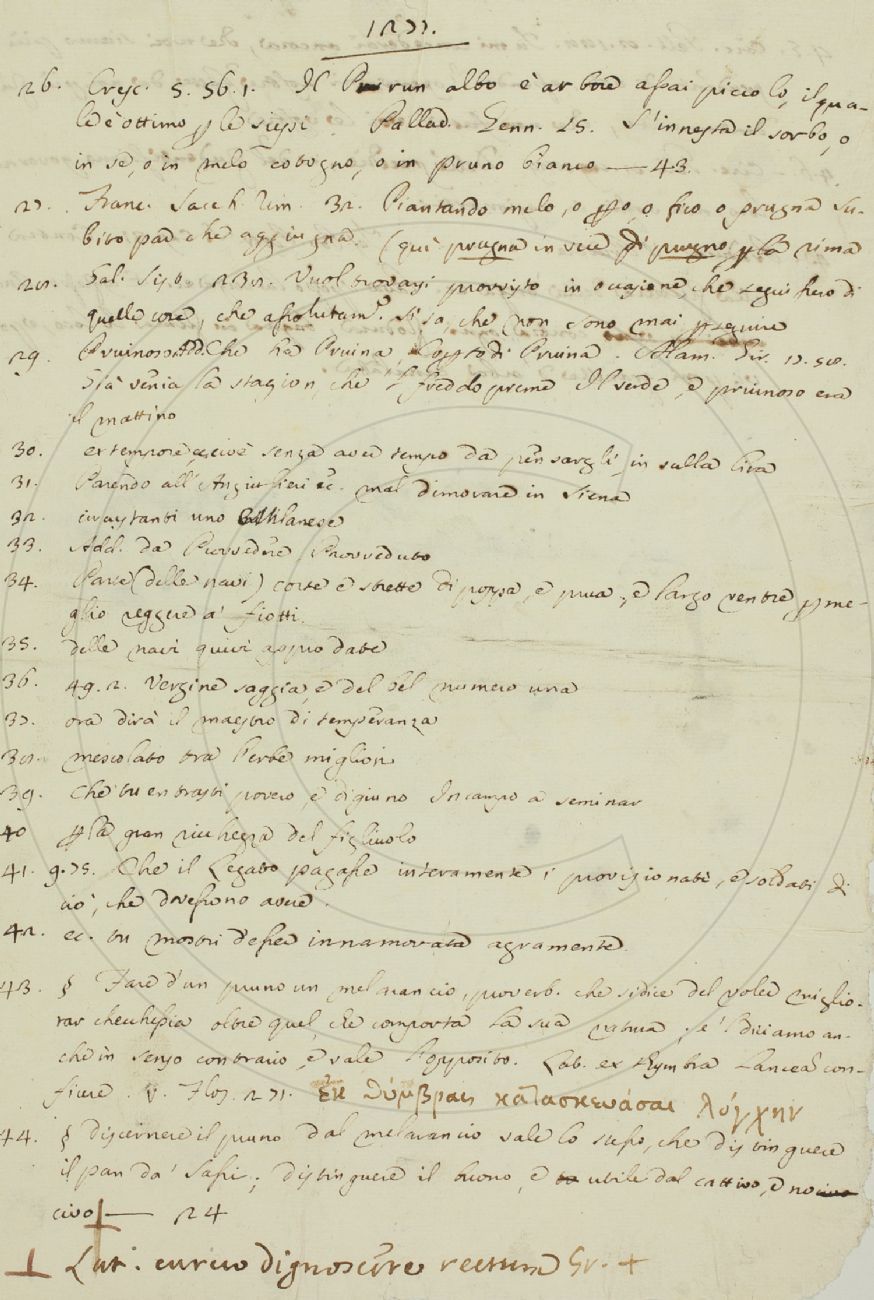 1277.
26. Cresc. 5. 56. 1. Il Prun albo è arbore assai piccolo, il qua-
le è ottimo p le siepi. Pallad. Genn. 15. S'innesta il sorbo, o
in sè, o in melo cotogno, o in pruno bianco — 43.
27. Franc. Sacch. rim. 32. Piantando melo, o p̱o, o fico o prugna su-
bito par che aggiugna. (qui prugna in vece di prugno p la rima
28. Sal. 232. Vuol trovarsi provvisto in occasione, che segu
quelle cose, che assolutam.e si sa, che non sono mai p seguire
29. Pruinoso Add. Che ha Pruina, di Pruina. Alam. Gir. 17. 58.
Già venia la stagion, che 'l freddo preme Il verde, e pruinoso era
il mattino
30. ex tempore, cioè senza aver tempo da pensargli, in sulla
31. Parendo all' Angiulieri ec. mal dimorare in Siena
32. uno Milanese
33. Add. da Provvedere Provveduto
34. Parse (delle navi) corte e strette di poppa, e prua, e largo ventre p me-
glio reggere a' fiotti.
35. delle navi quivi approdate
36. 49. 2. Vergine saggia, e del bel numero una
37. ora dirà il maestro di temperanza
38. mescolato tra l'erbe migliori
39. Che tu entrasti povero, e digiuno In campo a seminar
40 p la gran ricchezza del figliuolo
41. 9. 75. Che il Legato pagasse interamente i provisionati, e soldati di
ciò, che dovessono avere.
42. ec. tu mostri d'esser innamorata agramente.
43. § Fare d'un pruno un melarancio, proverb. che si dice del voler miglio-
rar checchessia oltre quel, che comporta la sua natura; e 'l Diciamo an-
che in senso contrario, e vale l'opposito. Lat. ex thymbra lanceã con-
ficere. v. Flos. 271. Ἐκ θύμβρας κατασκευάσαι λόγχην
44. § Discernere il pruno dal melarancio vale lo stesso, che distinguere
il pan da' sassi; distinguere il buono, e utile dal cattivo, e no
civo — 24
Lat. curvo dignoscere rectum Gr. +